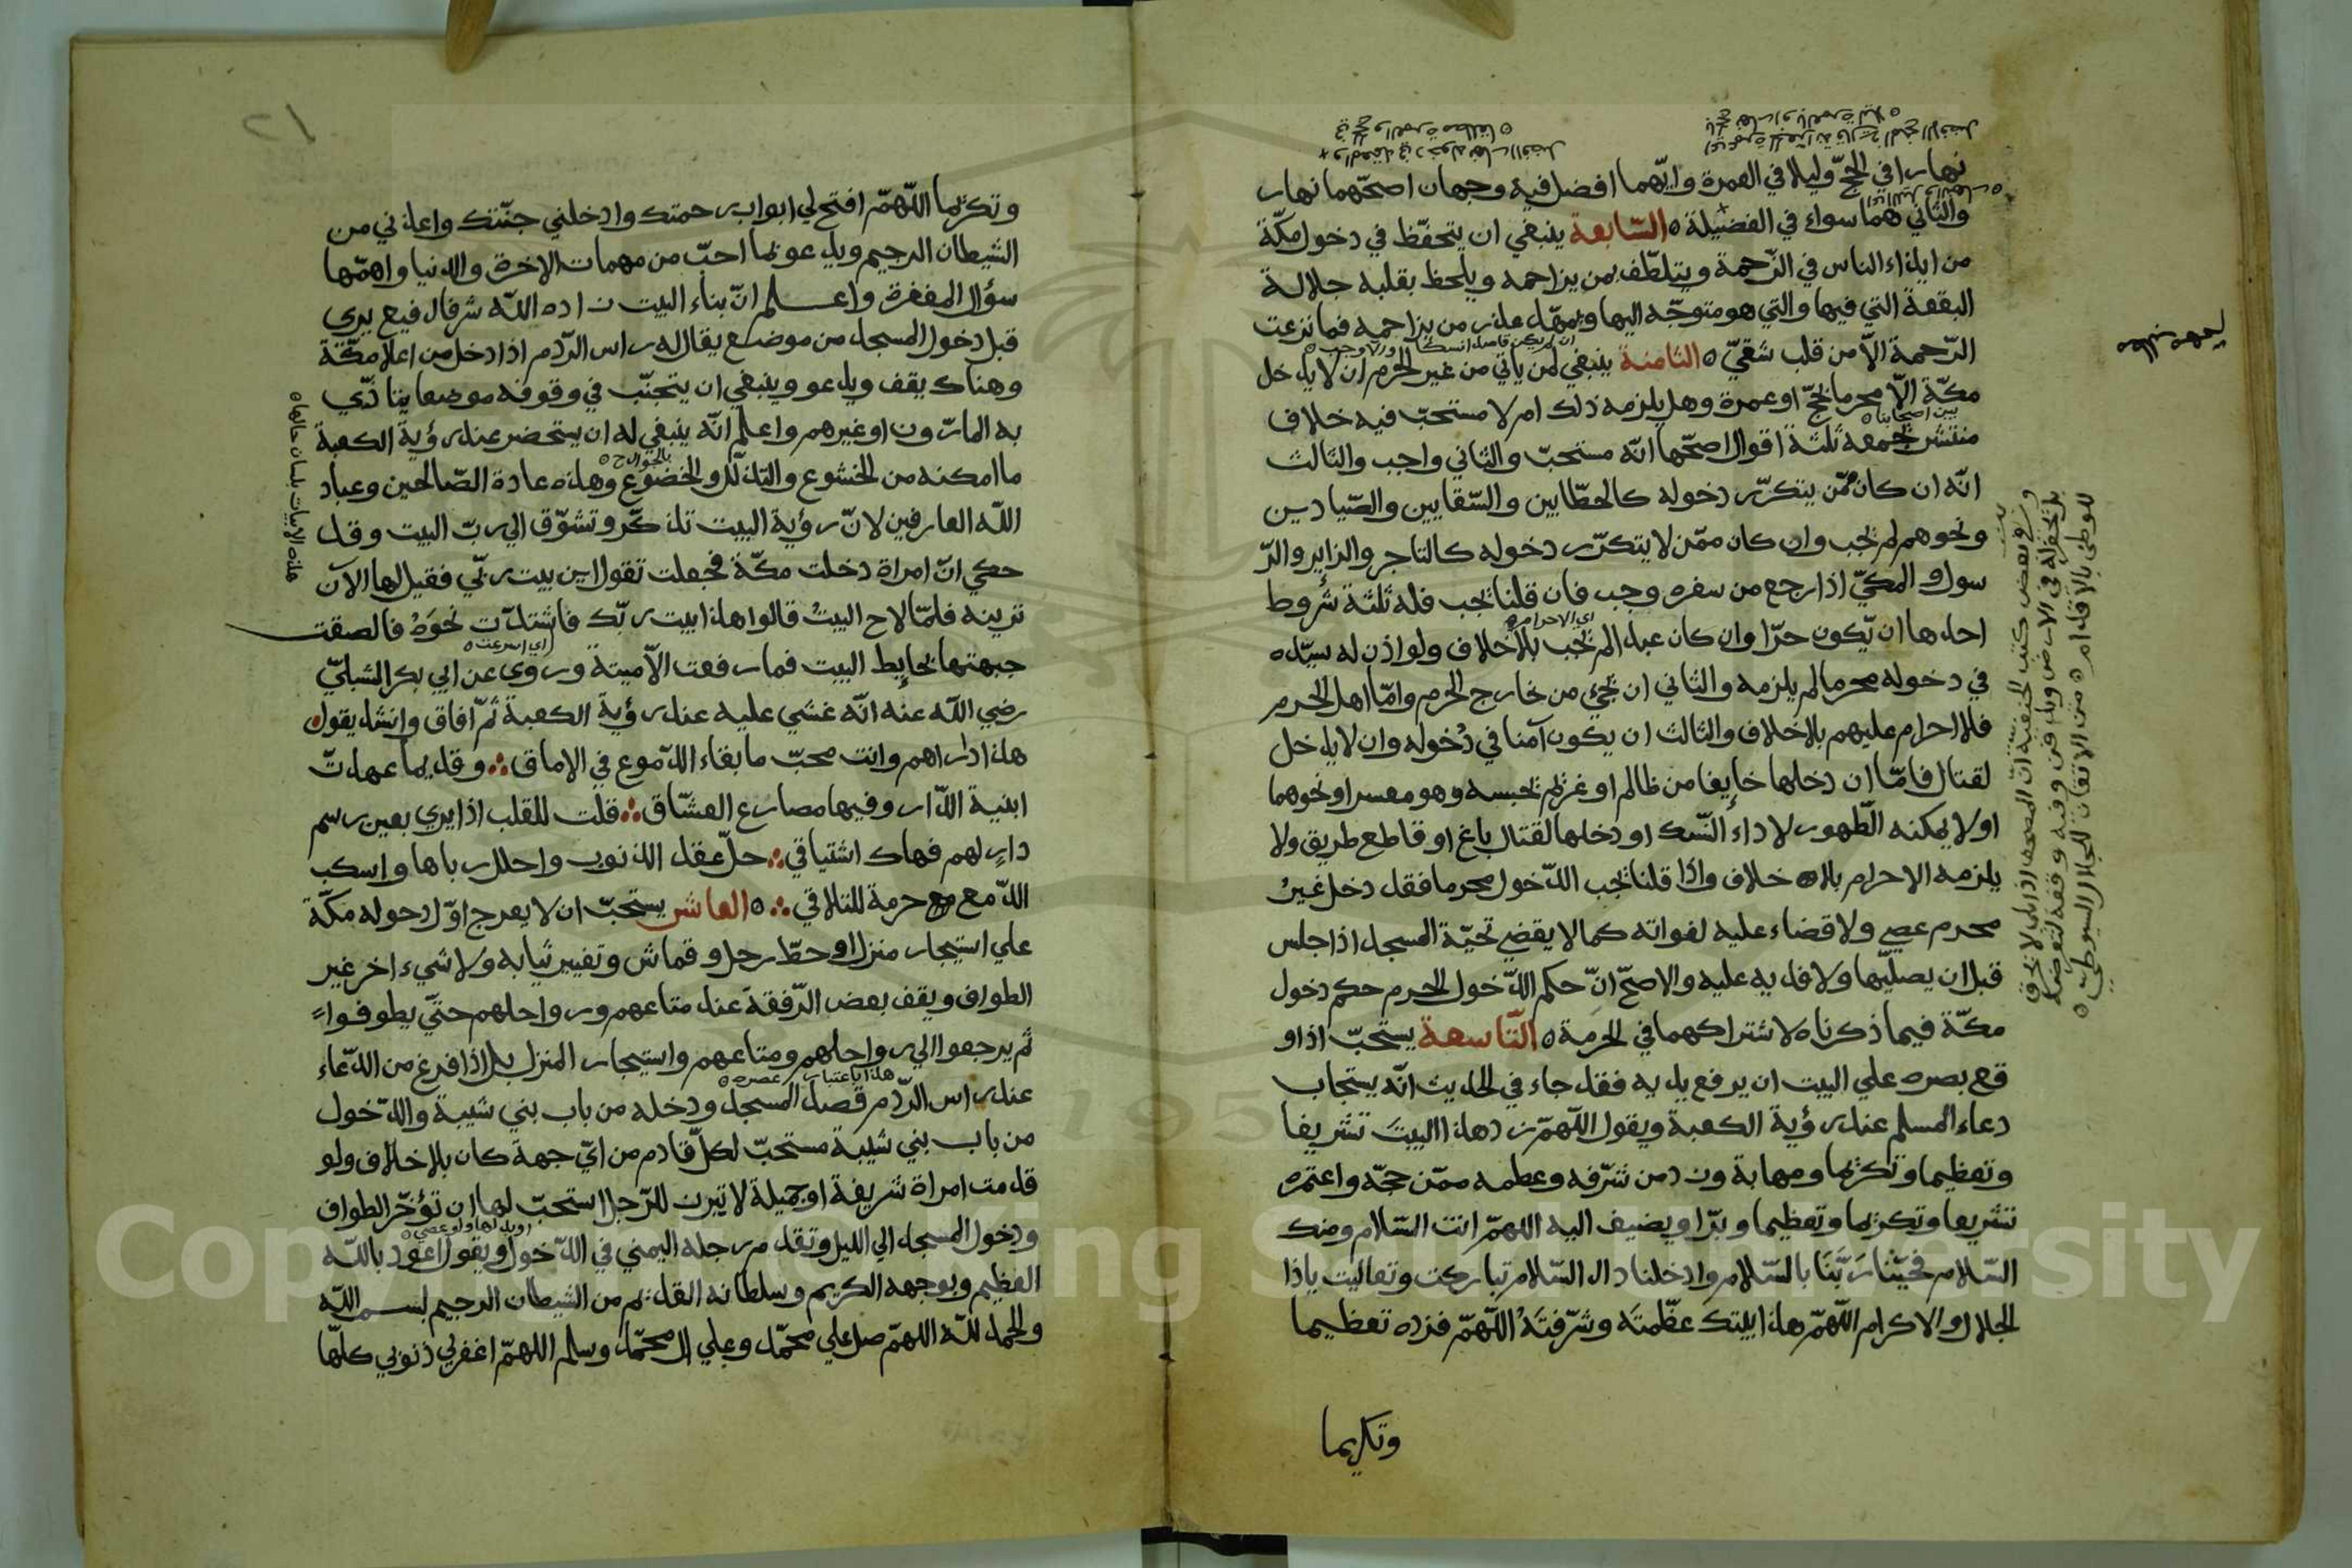 نهارا في الحجّ وليلا في العمرة وايّهما افضل فيه وجهان اصحّهما نهار
والثاني هما سواء في الفضيلة ه السّابعة ينبغي ان يتحفّظ في دخول مكّة
من ايذاء الناس في الزّحمة ويتلطّف بمن يزاحمه ويلحظ بقلبه جلالة
البقعة التي فيها والتي هو متوجّه اليها ويمهّد عذر من يزاحمه فما نزعت
ان لم يكن قاصدا نسكا
الرّحمة الاّ من قلب شقيّ ه الثامنة ينبغي لمن ياتي من غير الحرم ان لا يدخل
مكّة الاّ محرما بحجّ او عمرة وهل يلزمه ذلك ام لا مستحبّ فيه خلاف
بين اصحابنا ه
منتشر يجمعه ثلثة اقوال اصحّها انّه مستحبّ والثاني واجب والثالث
انّه ان كان ممّن يتكرّر دخوله كالحطّابين والسّقايين والصّيادين
ونحوهم لم يجب وان كان ممّن لا يتكرّر دخوله كالتاجر والزاير والرّ
سول والمكيّ اذا رجع من سفره وجب فان قلنا يجب فله ثلثة شروط
اي الاحرام ه
احدها ان يّكون حرّا وان كان عبدا لم يجب بلاخلاف ولو اذن له سيّده
في دخوله محرما لم يلزمه والثاني ان يجئ من خارج الحرم وامّا اهل الحرم
فلا احرام عليهم بلاخلاف والثالث ان يكون آمنا في دُخوله وان لا يدخل
لقتال فامّا ان دخلها خايِفا من ظالم او غريم يحبسه وهو معسر او نحوهما
او لا يمكنه الظّهور لاداء النّسك او دخلها لقتال باغ او قاطع طريق ولا
يلزمه الاحرام بلا خلاف واذا قلنا يجب الدّخول محرما فقد دخل غيرُ
محرم عصي ولا قضاء عليه لفواته كما لا يقضي تحيّة المسجد اذا جلس
قبل ان يصليّها ولا فديه عليه والاصحّ انّ حكم الدّخول الحرم حكم دخول
مكّة فيما ذكرناه لاشتراكهما في الحرمة ه التّاسعة يستحبّ اذا و
قع بصره علي البيت ان يرفع يديه فقد جاء في الحديث انّه يستجاب
دعاء المسلم عند رؤية الكعبة ويقول اللّهمّ زد هذا البيتَ تشريفا
وتعظيما وتكريما ومهابة وزد من شرّفه وعظمه ممّن حجّه واعتمره
تشريفا وتكريما وتعظيما وبرّا ويضيف اليه اللهمّ انت السّلام ومنك
السّلام فحيّنا رَبَّنَا بالسّلام وادخلنا دار السّلام تباركت وتعاليت ياذا
الجلال والاكرام اللّهمّ هذا بيتك عظّمتَه وشرّفتَهُ اللّهمّ فزده تعظيما
وتكريما
وفي بعض كتب الحنفية انّ المصحف اذا بلي لا يحرق
بل يحفر له في الارض ويدفن وفيه وقفة لتعرّضه
للوطئ بالاقدام ه من الاتقان للجلال السيوطيّ ه
٢١
وتكريما اللّهمّ افتح لي ابواب رحمتك وادخلني جنّتك واعذني من
الشيطان الرجيم ويدعو بما احبّ من مهمات الاخرة والدنيا واهمّها
سؤال المغفرة واعلم انّ بناء البيت زاده اللّه شرفا رفيع يري
قبل دخول المسجد من موضع يقال له راس الرّدم اذا دخل من اعلا مكّة
وهناك يقف ويدعو وينبغي ان يتجنّب في وقوفه موضعا يتاذّي
به المارّون او غيرهم واعلم انّه ينبغي له ان يستحضر عند رؤية الكعبة
بالجوارح ه
ما امكنه من الخشوع والتذلّل والخضوع وهذه عادة الصّالحين وعباد
اللّه العارفين لانّ رؤية البيت تذكّر وتشوّق الي ربّ البيت وقد
حكي انّ امراة دخلت مكّة فجعلت تقول اين بيت ربّي فقيل لها الآن
ترينه فلمّا لاح البيتُ قالوا هذا بيت ربّك فاشتدّت نحوَهُ فالصقت
اي اسرعت ه
جبهتها بحايِط البيت فما رفعت الاّ ميتة وروي عن ابي بكر الشبليّ
رضي اللّه عنه انّه غشي عليه عند رؤية الكعبة ثمّ افاق وانشد يقول
هذه الابيات بلسان حالها ه
هذا دارهم وانت محبّ ما بقاء الدّموع في الاماق ؞ وقديما عهدتّ
ابنية الدّار وفيها مصارع العشّاق ؞ قلت للقلب اذ ايري بعين رسم
دارٍ لهم فهاك اشتياقي ؞ حلّ عقد الذنوب واحلل رباها واسكب
الدّمع حرمة للتلاقي ؞ ه العاشر يستحبّ ان لا يعرج اوّل دخوله مكّة
علي استيجار منزل او حطّ رحل وقماش وتغيير ثيابه ولا شيء اخر غير
الطواف ويقف بعض الرّفقة عند متاعهم ورواحلهم حتّي يطوفوا
ثم يرجعوا الي رواحلهم ومتاعهم واستيجار المنزل بل اذا فرغ من الدّعاء
هذا باعتبار عصره ه
عند راس الرّدم قصد المسجد ودخله من باب بني شيبة والدّخول
من باب بني شيبة مستحبّ لكلّ قادم من ايّ جهة كان بلاخلاف ولو
قدمت امراة شريفة او جميلة لا تبرز للرّجل استحبّ لها ان تؤخّر الطواف
ودخول المسجد الي الليل وتقدم رجله اليمني في الدّخول ويقول اعوذ باللّه
العظيم وبوجهه الكريم وسلطانه القديم من الشيطان الرجيم بسم اللّه
والحمد للّه اللهمّ صل علي محمّد وعلي ال محمّد وسلم اللهمّ اغفر لي ذنوبي كلّها